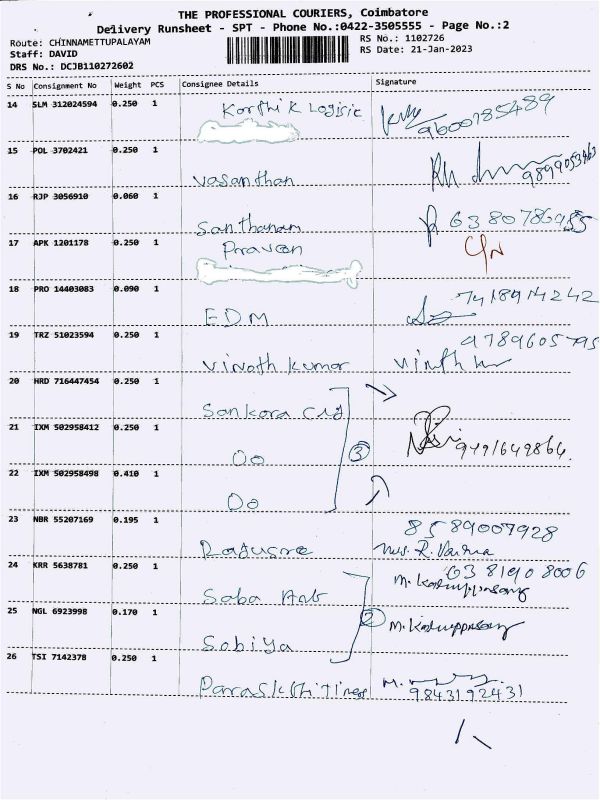 THE PROFESSIONAL COURIERS, Coimbatore
Delivery Runsheet - SPT - Phone No.:0422-3505555 - Page No.:2
Route: CHINNAMETTUPALAYAM
RS No.: 1102726
Staff: DAVID
RS Date: 21-Jan-2023
DRS No.: DCJB110272602
S No Consignment No Weight PCS Consignee Details Signature
14 SLM 312024594 0.250 1 Karthik Logisic
9600785489
15 POL 3702421 0.250 1
Vasanthan
16 RJP 3056910 0.060 1
Santhanam 6380786955
17 APK 1201178 0.250 1 Praveen
18 PRO 14403083 0.090 1
EDM 7418914242
19 TRZ 51023594 0.250 1 9789605795
Vinoth kumar
20 HRD 716447454 0.250 1
Sankara
21 IXM 502958412 0.250 1
Do 3 9491649864
22 IXM 502958498 0.410 1
Do
23 NBR 55207169 0.195 1 8589007928
Mrs. R. Varma
24 KRR 5638781 0.250 1 6381908006
Saba M. Karuppasamy
25 NGL 6923998 0.170 1 2 M. Karuppasamy
Sobiya
26 TSI 7142378 0.250 1
M. 9843192431